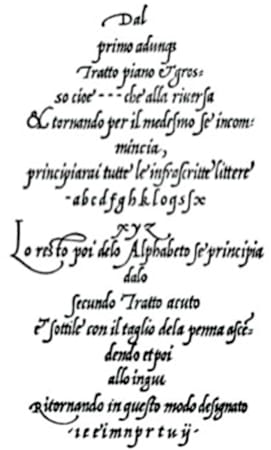 Dal
primo adunqȝ
Tratto piano & gros=
so cioe - - - che alla riversa
& tornando per il medesmo se incom
mincia,
principiarai tutte le infrascritte littere
- a b c d f g h k l o q s ſ x
x y z
Lo resto poi delo Alphabeto se principia
dalo
secundo Tratto acuto
e sottile con il taglio dela penna ascē
dendo et poi
allo ingiu
Ritornando in questo modo designato
- i e e i m n p r t u ÿ -